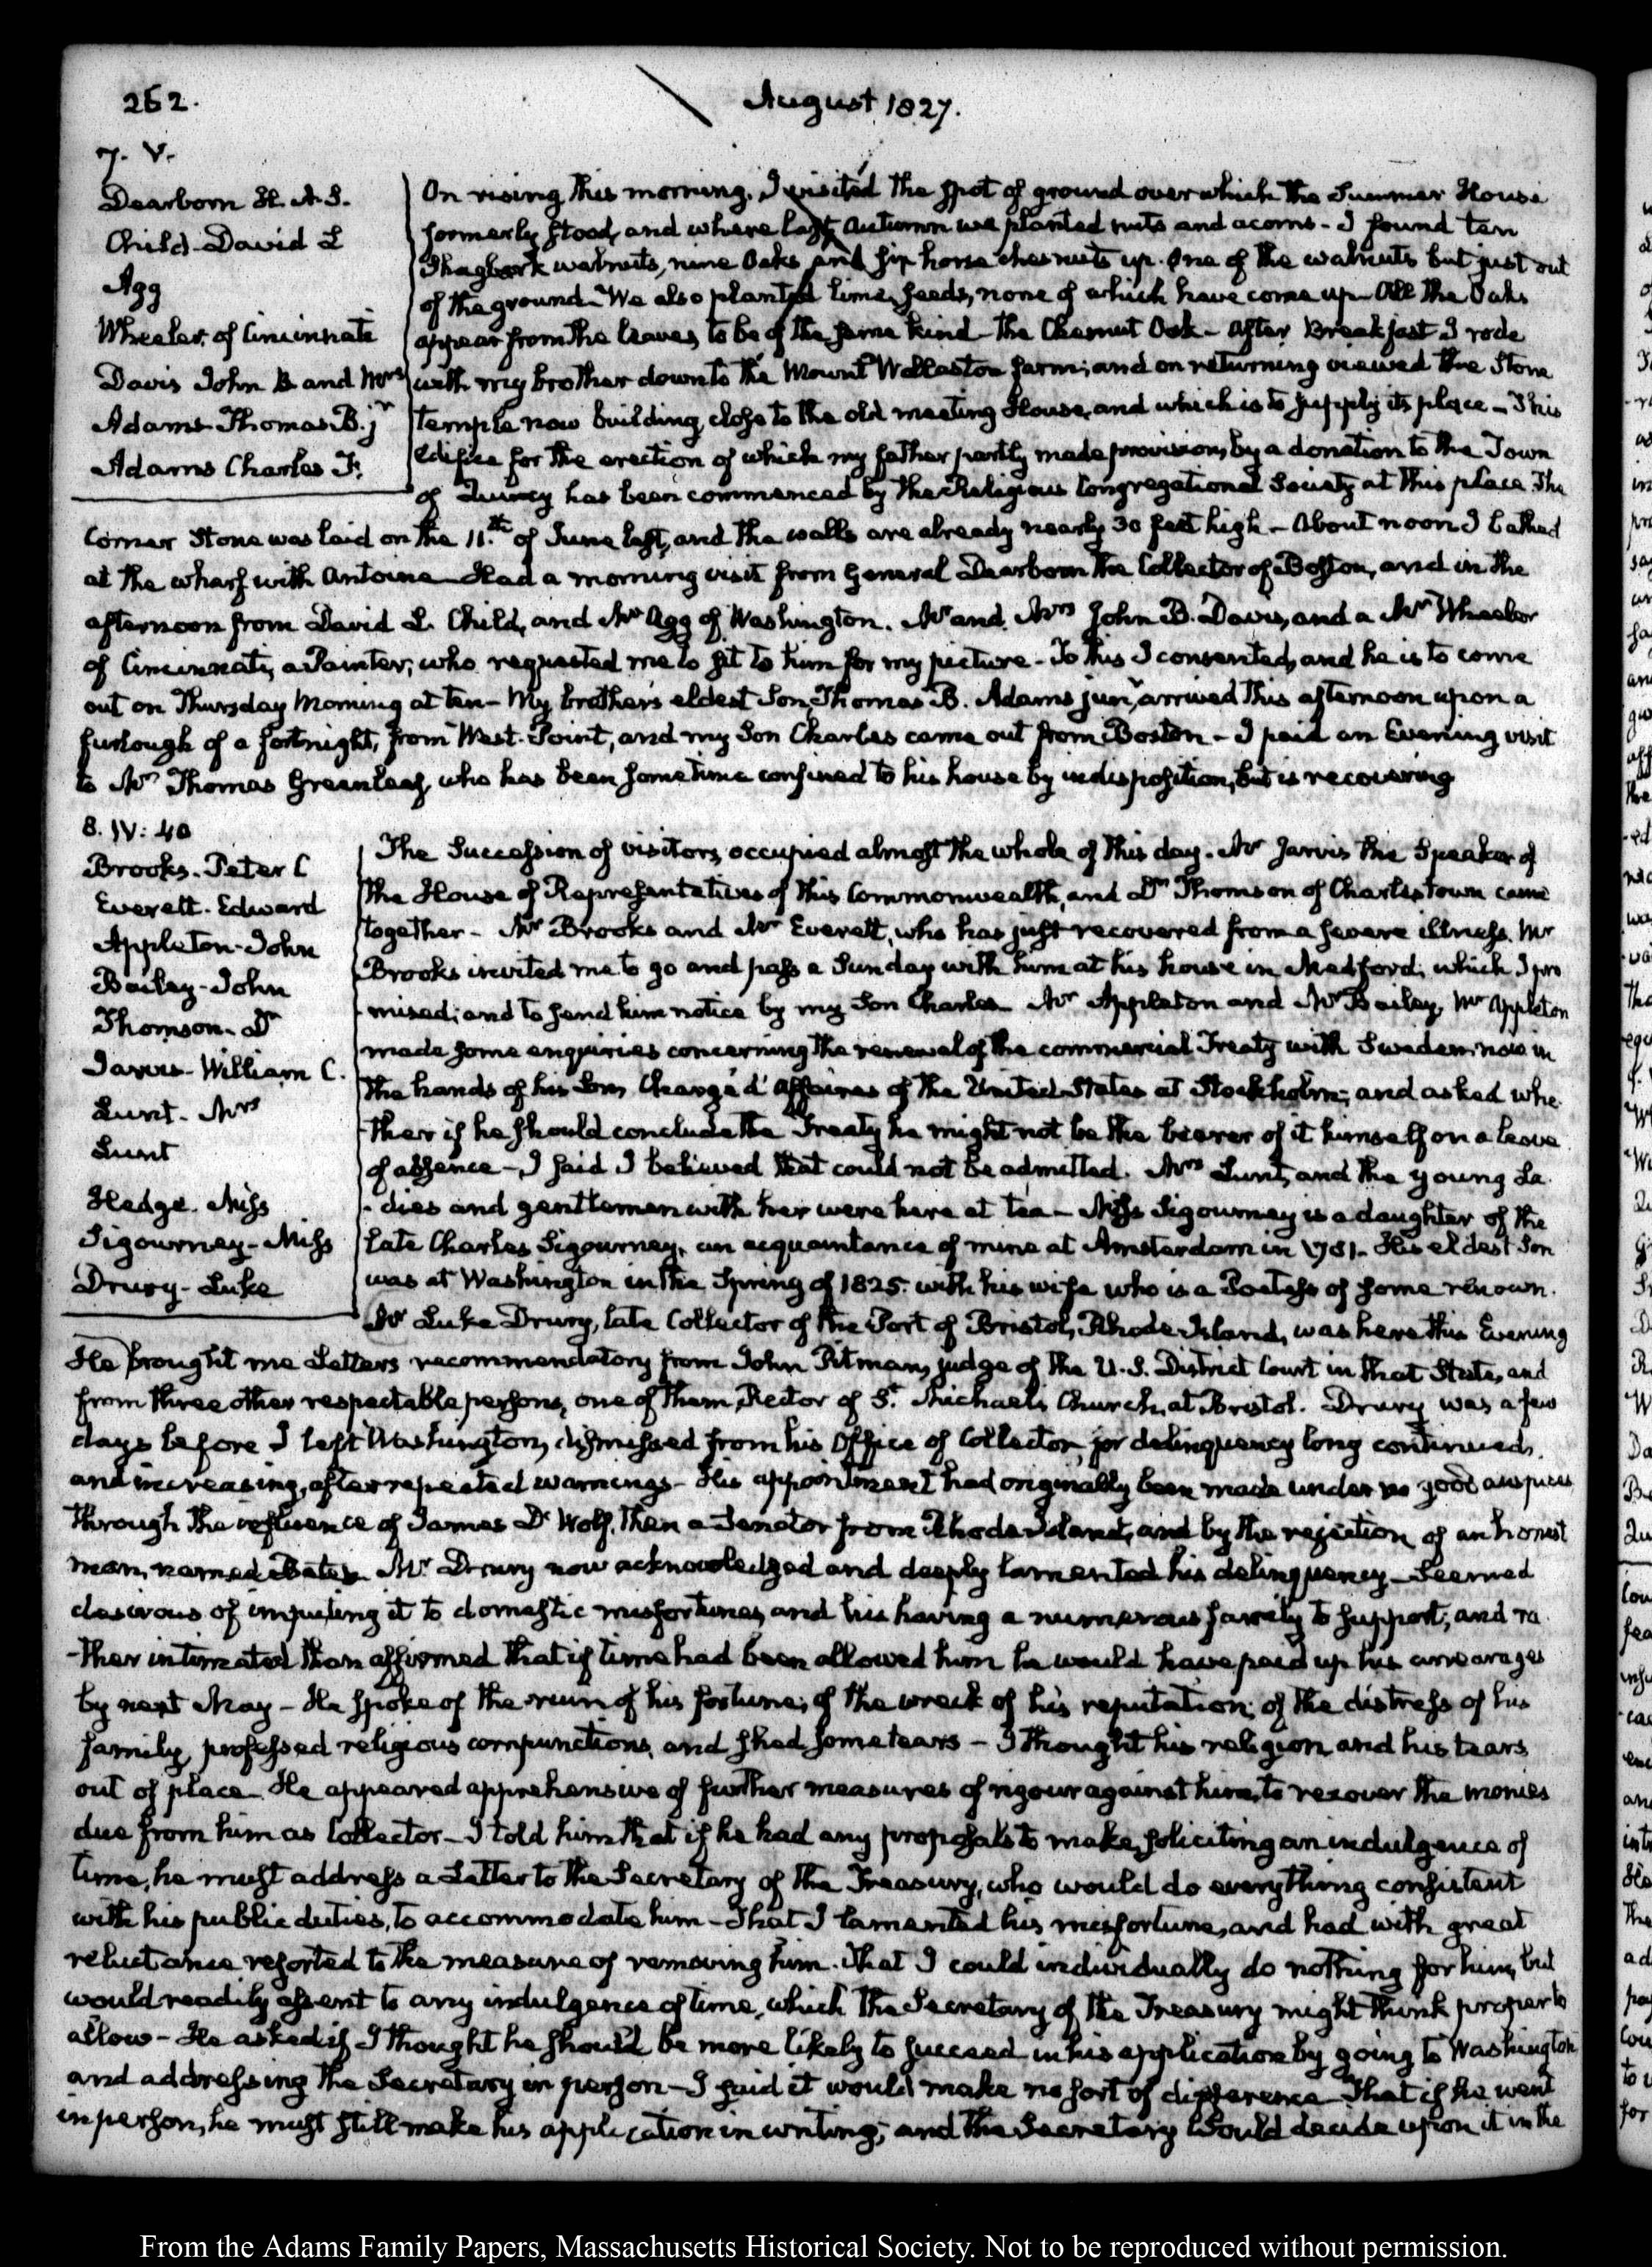 262.
August 1827.
7. V.
Dearborn H. A. S.
Child- David L
Agg
Wheeler, of Cincinnati
Davis John B and Mrs
Adams- Thomas B. jr
Adams Charles F.
On rising this morning, I visited the spot of ground over which the Summer House
formerly stood, and where last Autumn we planted nuts and acorns- I found ten
Shagbark walnuts, nine Oaks and six horse chesnuts up. One of the walnuts but just out
of the ground- We also planted lime seeds, none of which have come up- All the Oaks
appear from the leaves, to be of the same kind- the Chesnut Oak- After Breakfast I rode
with my brother down to the Mount Wollaston farm; and on returning viewed the Stone
temple now building, close to the old meeting House, and which is to supply its place- This
edifice for the erection of which my father partly made provision, by a donation to the Town
of Quincy has been commenced by the Religious Congregational Society at this place. The
Corner Stone was laid on the 11.th of June last, and the walls are already nearly 30 feet high- About noon I bathed
at the wharf with Antoine- Had a morning visit from General Dearborn the Collector of Boston, and in the
afternoon from David L. Child, and Mr Agg of Washington. Mr and Mrs John B. Davis, and a Mr Wheeler
of Cincinnati, a Painter; who requested me to sit to him for my picture- To this I consented, and he is to come
out on Thursday Morning at ten- My brother's eldest Son, Thomas B. Adams junr arrived this afternoon upon a
furlough of a fortnight, from West-Point, and my Son Charles came out from Boston- I paid an Evening visit
to Mr Thomas Greenleaf, who has been sometime confined to his house by indisposition, but is recovering
8. IV: 40
Brooks. Peter C
Everett. Edward
Appleton- John
Bailey- John
Thomson- Dr
Jarvis- William C.
Lunt- Mrs
Lunt
Hedge. Miss
Sigourney- Miss
Drury- Luke
The Succession of visitors, occupied almost the whole of this day. Mr Jarvis the Speaker of
the House of Representatives of this Commonwealth, and Dr Thomson of Charlestown came
together- Mr Brooks and Mr Everett, who has just recovered from a severe illness. Mr
Brooks invited me to go and pass a Sunday with him at his house in Medford, which I pro
-mised; and to send him notice by my Son Charles- Mr Appleton and Mr Bailey, Mr Appleton
made some enquiries concerning the renewal of the commercial Treaty with Sweden, now in
the hands of his Son, Chargé d'Affaires of the United States at Stockholm; and asked whe
-ther if he should conclude the Treaty he might not be the bearer of it himself on a leave
of absence- I said I believed that could not be admitted. Mrs Lunt, and the young La
-dies and gentleman with her were here at tea- Miss Sigourney is a daughter of the
late Charles Sigourney, an acquaintance of mine at Amsterdam in 1781- His eldest Son
was at Washington in the Spring of 1825. with his wife who is a Poetess of some renown.
Mr Luke Drury, late Collector of the Port of Bristol, Rhode-Island, was here this Evening
He brought me Letters recommendatory from John Pitman, judge of the U.S. District Court in that State, and
from three other respectable persons, one of them, Rector of St. Michael's Church, at Bristol. Drury was a few
days before I left Washington, dismissed from his Office of Collector, for delinquency long continued,
and increasing, after repeated warnings- His appointment had originally been made under no good auspices
through the influence of James D'Wolf, then a Senator from Rhode-Island, and by the rejection of an honest
man, named Bates. Mr Drury now acknowledged and deeply lamented his delinquency- Seemed
desirous of imputing it to domestic misfortunes, and his having a numerous family to support; and ra
-ther intimated than affirmed that if time had been allowed him he would have paid up his arrearages
by next May- He spoke of the ruin of his fortune; of the wreck of his reputation; of the distress of his
family, professed religious compunctions, and shed some tears- I thought his religion and his tears
out of place- He appeared apprehensive of further measures of rigour against him, to recover the monies
due from him as Collector- I told him that if he had any proposals to make, soliciting an indulgence of
time, he must address a Letter to the Secretary of the Treasury, who would do everything consistent
with his public duties, to accommodate him- That I lamented his misfortune, and had with great
reluctance resorted to the measure of removing him. That I could individually do nothing for him, but
would readily assent to any indulgence of time, which the Secretary of the Treasury might think proper to
allow- He asked if I thought he should be more likely to succeed in his application by going to Washington
and addressing the Secretary in person- I said it would make no sort of difference- That if he went
in person, he must still make his application in writing; and the Secretary would decide upon it in the
From the Adams Family Papers, Massachusetts Historical Society. Not to be reproduced without permission.